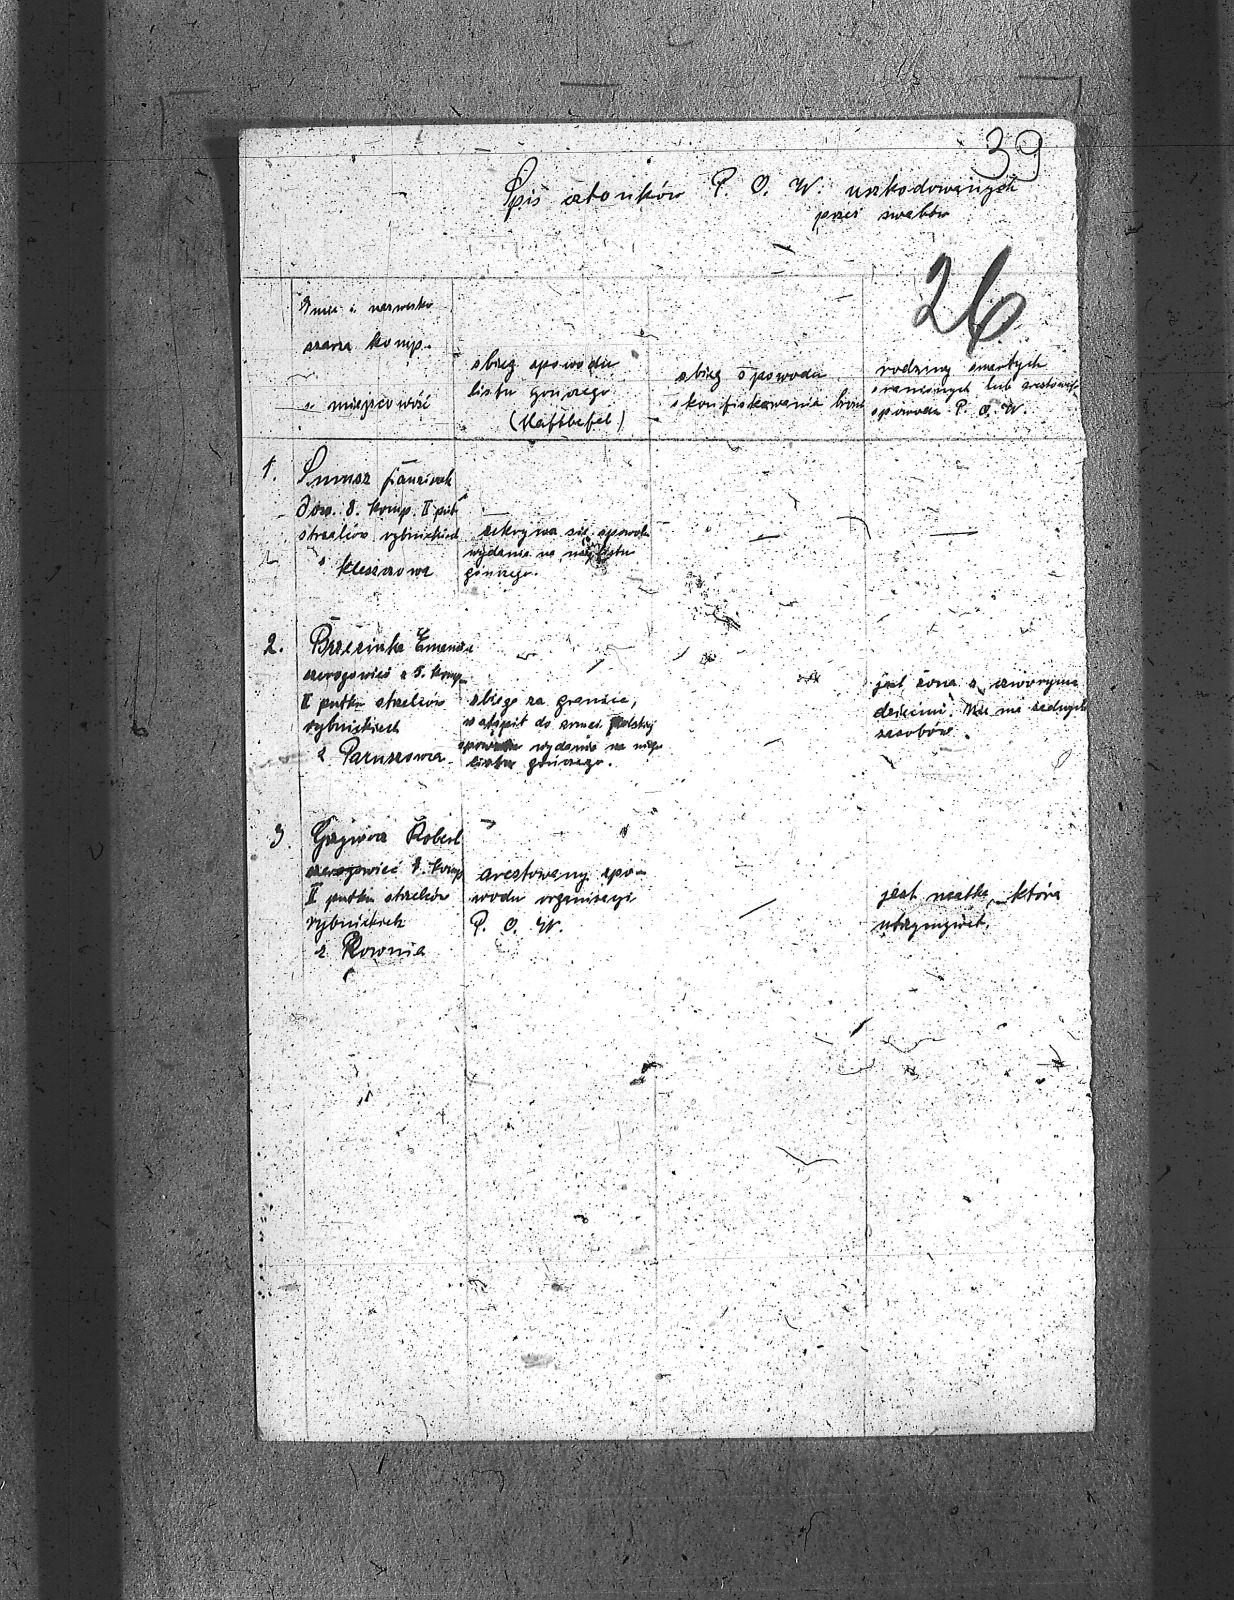 39
Spis członków P. O. W. uszkodowanych
przez swabów
26
Imie i nazwisko
szarza komp.
i miejscowość
zbieg spowodu
listu gonczego
(Haftbefel)
zbieg spowodu
skonfiskowania broni
rodziny zmartych
zranionych lub
spowodu P. O. W.
1.
Franciszek
Dow. 8. komp. II puł
strzelców rybnickich
z Kleszczowa
zekrywa się spowodu
wydania na niego listu
gonczego.
2.
Brzezinka
szeregowiec z 5. komp.
II pułku strzelców
rybnickich
z Paruszowca
zbiego za granice,
wstąpit do armei polskiej
spowodu wydania na niego
listu gonczego.
jest żona z czworgiem
dziećmi. Nie ma żadnych
zasobów.
3.
Robert
szeregowiec 8. komp
II pułku strzelców
rybnickich
z Rownia
arestowany spo-
wodu organizacji
P. O. W.
jest matka, którą
utrzymywał.